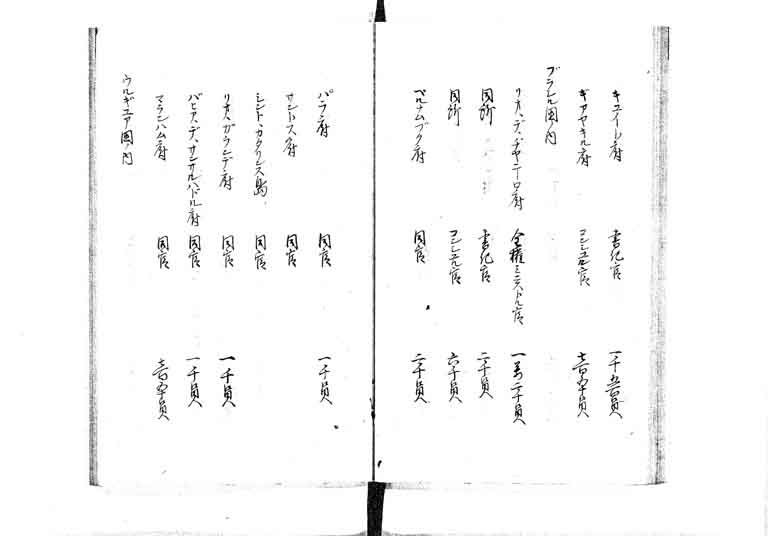 キユイト府 書紀官 一千五百員
ギアヤキル府 コンシユル官 七百五十員
ブラシル国ノ内
リオ、デ、ジヤ子ーロ府 全権ミニストル官 一万二千員
同所 書紀官 二千員
同所 コンシユル官 六千員
ペルナムブク府 同官 二千員
パラ府 同官 一千員
サントス府 同官
シント、カタリンス島 同官
リオ、ガランデ府 同官 一千員
バヒス、デ、サンサルバドル府 同官 一千員
マランハム府 同官 七百五十員
ウルギユア国ノ内